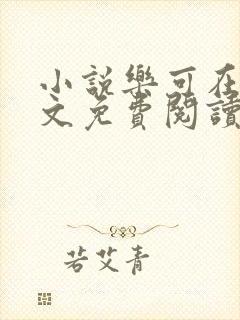 小說樂可在
文免費閱讀
若艾青